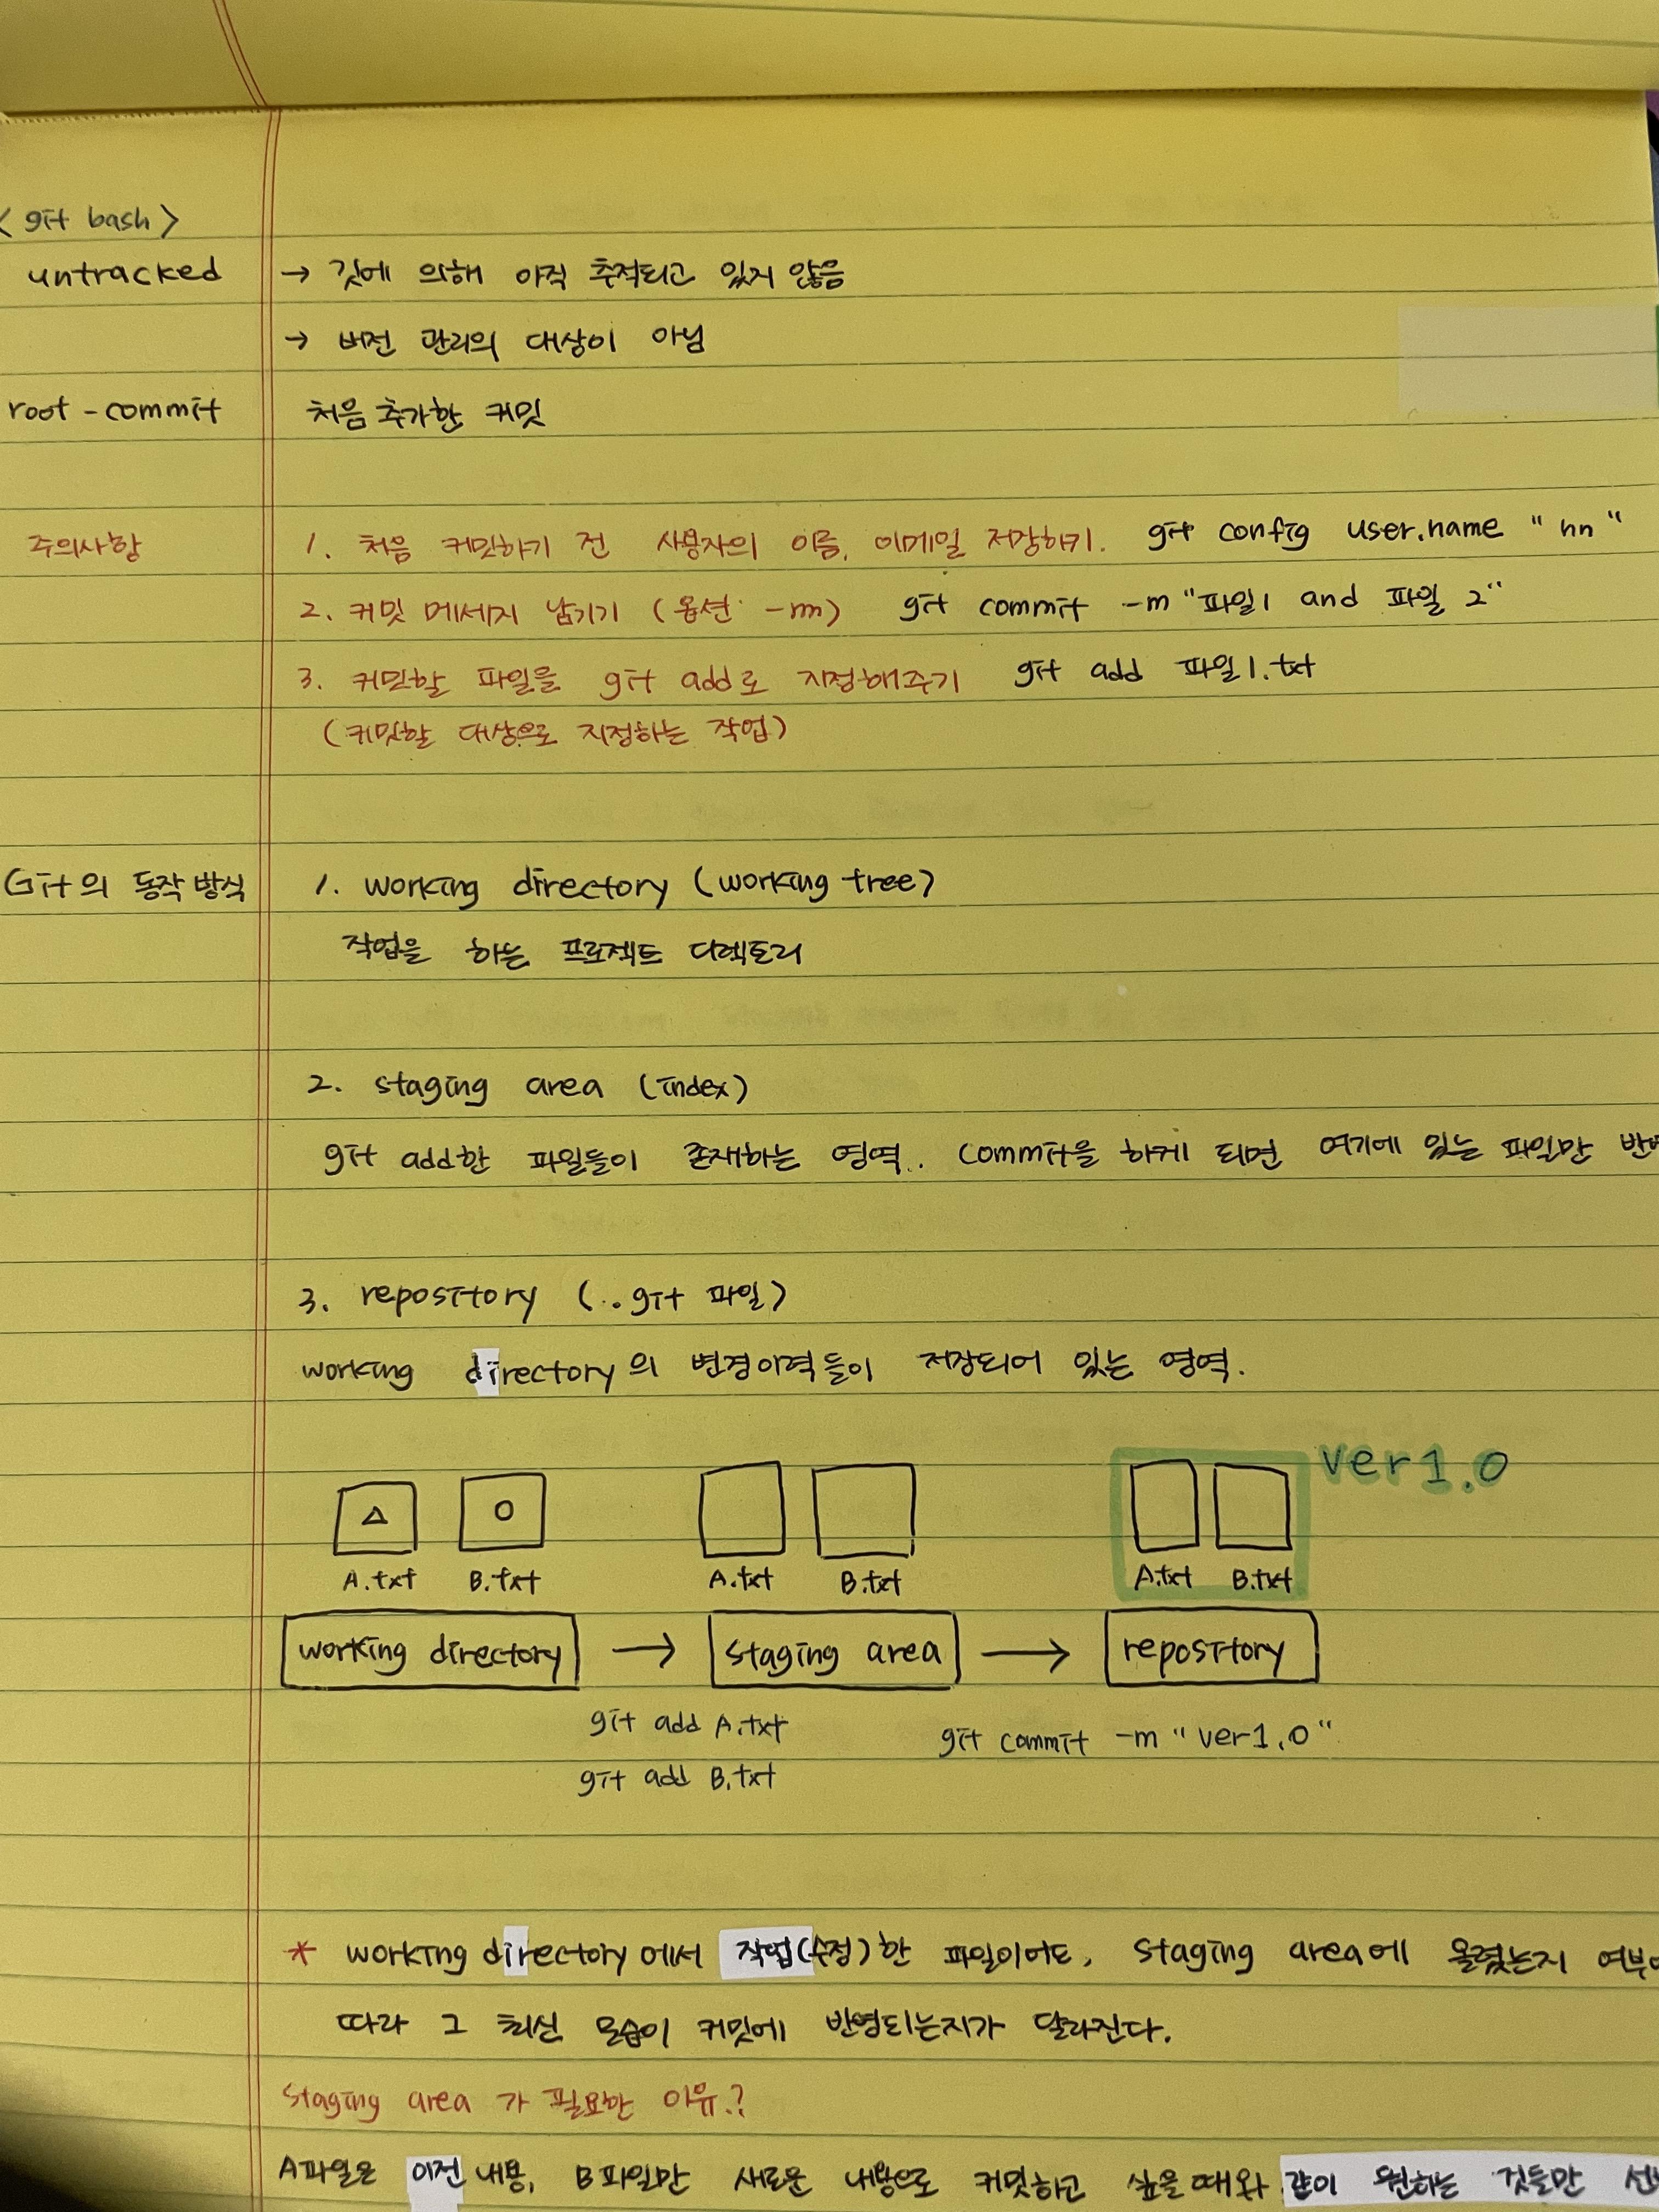 < git bash >
untracked → 깃에 의해 아직 추적되고 있지 않음
→ 버전 관리의 대상이 아님
root-commit 처음 추가한 커밋
주의사항 1. 처음 커밋하기 전 사용자의 이름, 이메일 저장하기. git config user.name "hn"
2. 커밋 메세지 남기기 (옵션 -m) git commit -m "파일1 and 파일 2"
3. 커밋할 파일을 git add로 지정해주기 git add 파일1.txt
(커밋할 대상으로 지정하는 작업)
Git의 동작 방식 1. working directory (working tree)
작업을 하는 프로젝트 디렉토리
2. staging area (index)
git add한 파일들이 존재하는 영역.. commit을 하게 되면 여기에 있는 파일만
3. repository (..git 파일)
working directory의 변경이력들이 저장되어 있는 영역.
ver1.0
A.txt B.txt A.txt B.txt A.txt B.txt
working directory → staging area → repository
git add A.txt git commit -m "ver1.0"
git add B.txt
* working directory에서 작업(수정)한 파일이어도, staging area에 올렸는지 여부
따라 그 최신 모습이 커밋에 반영되는지가 달라진다.
staging area가 필요한 이유.?
A파일은 이전 내용, B파일만 새로운 내용으로 커밋하고 싶을때와 같이 원하는 것들만